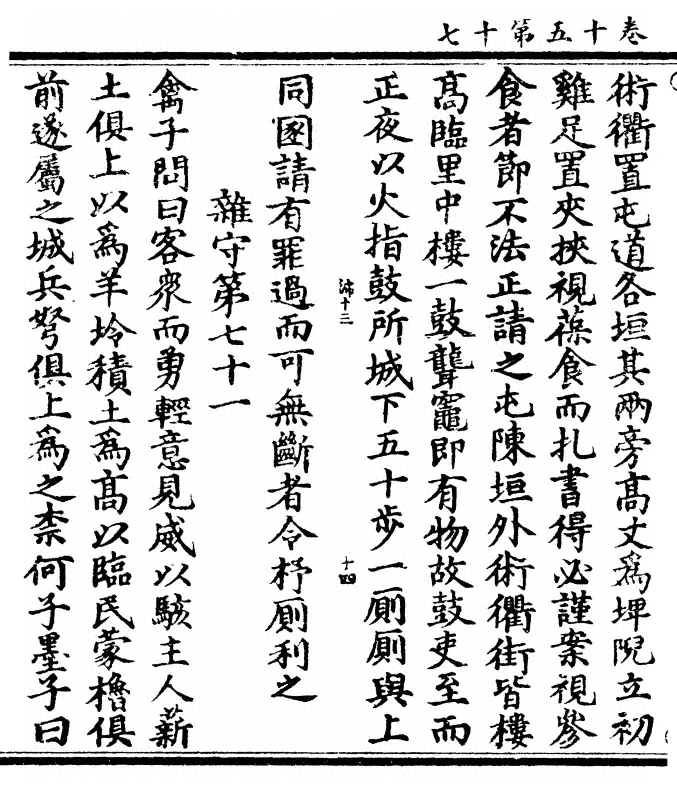 卷十五第十七
術衢置屯道各垣其兩旁高丈爲埤𨸝立初
雞足置夾挾視葆食而扎書得必謹案視參
食者節不法正請之屯陳垣外術衢街皆樓
高臨里中樓一鼓聾竈即有物故鼓吏至而
正夜以火指鼓所城下五十步一厠厠與上
沛十三
十四
同圂請有罪過而可無斷者令杼厠利之
雜守第七十一
禽子問曰客衆而勇輕意見威以駭主人薪
土俱上以爲羊坽積土爲高以臨民蒙櫓俱
前遂屬之城兵弩俱上爲之柰何子墨子曰